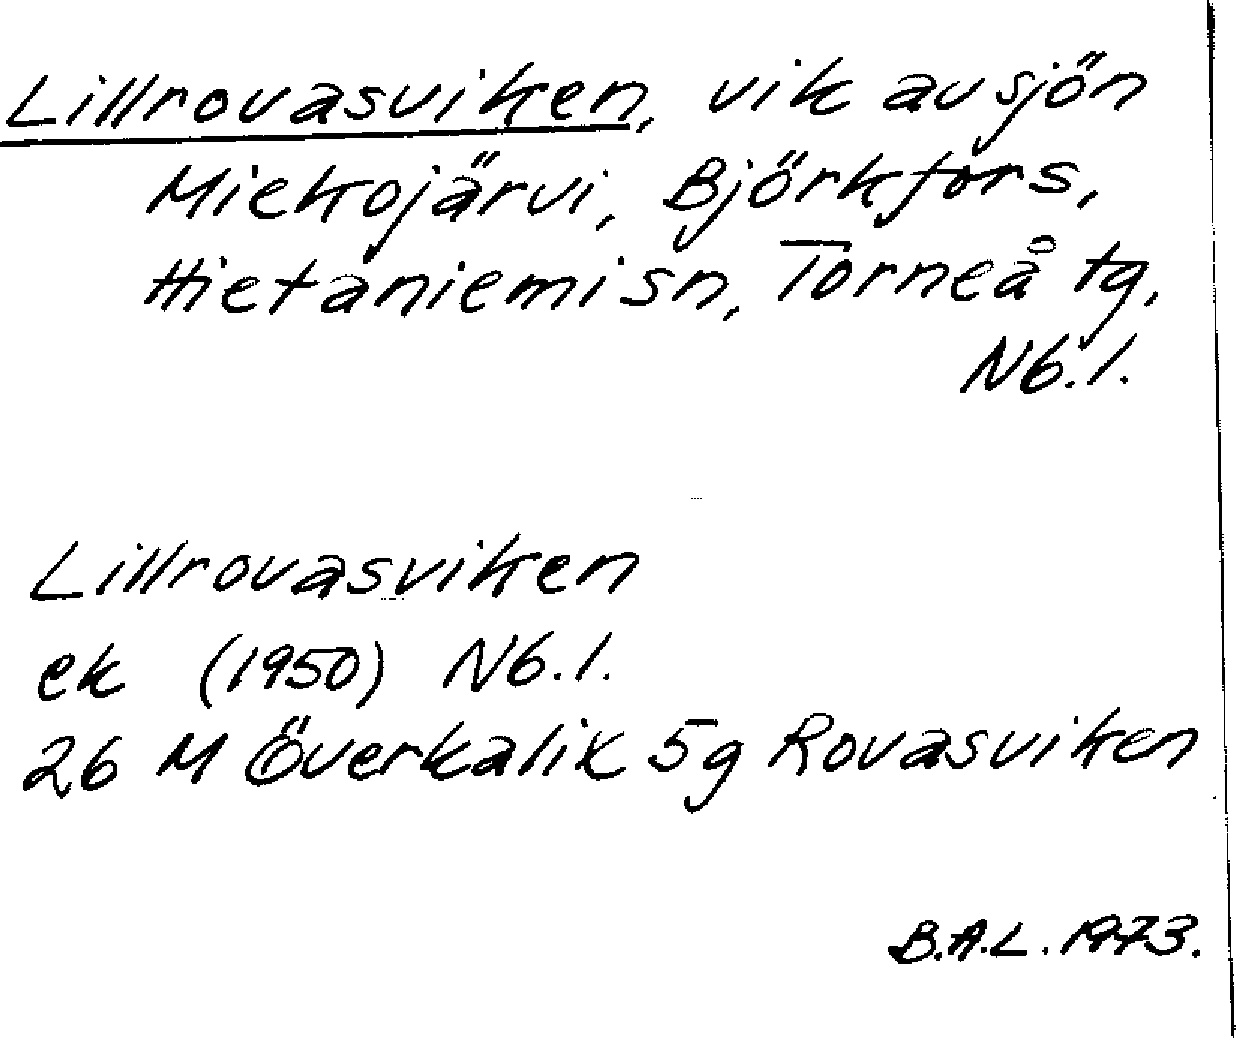 Lillrovasviken, vik av sjön
Miekojärvi, Björkfors,
Hietaniemi sn, Torneå tg,
Nb.l.
Lillrovasviken
ek (1950) Nb.l.
26 M Överkalix 5g Rovasviken
B.A.L. 1973.